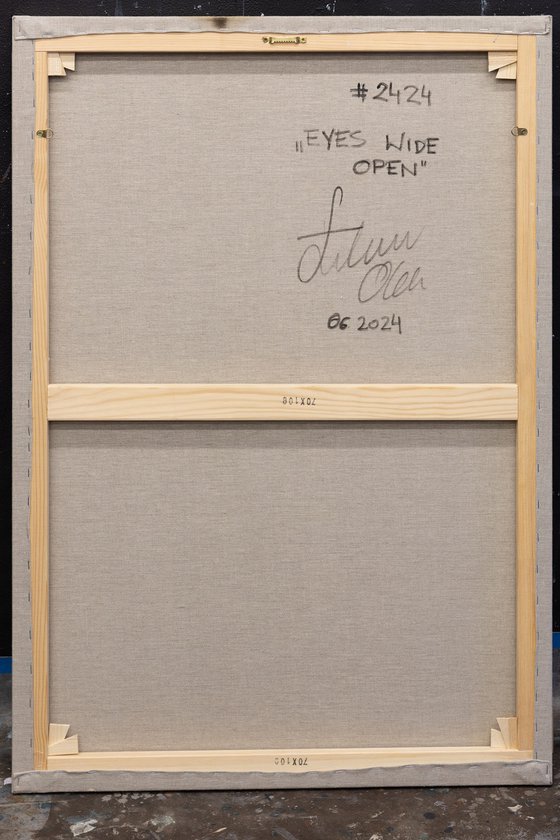 #2424
„EYES WIDE
OPEN"
06 2024
70X100
70X100